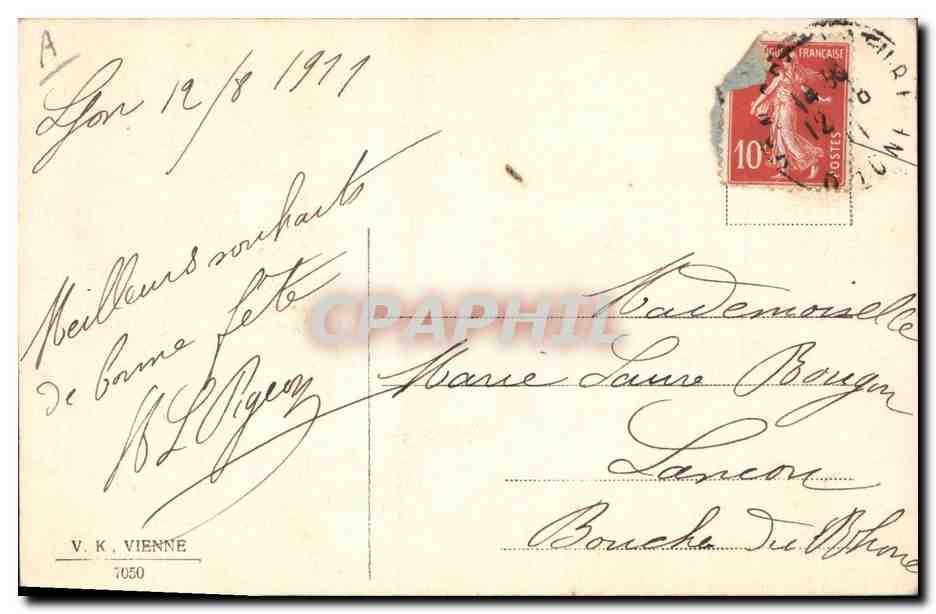 A
Lyon 12/8 1911
Meilleurs souhaits
de bonne fête
Pigeon
V. K, VIENNE
7050
FRANÇAISE
10
POSTES
14
12
8
11
CPAPHIL
Mademoiselle
Marie Laure Bougon
Lancon
Bouche du Rhone